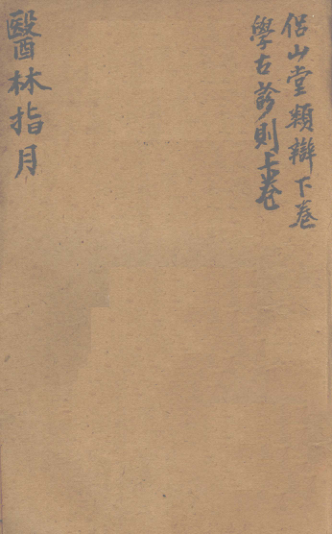 侶山堂類辯下卷
學古診則上卷
醫林指月